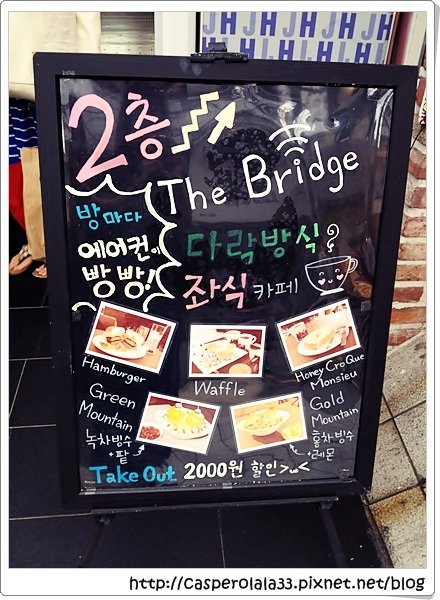 JH JH JH
2층
The Bridge
방마다
에어컨이
빵빵!
다락방식
좌식 카페
Hamburger
Waffle
Honey Cro Que
Monsieu
Green
Mountain
녹차빙수
+팥
Gold
Mountain
홍차빙수
+레몬
Take Out 2000원 할인>ᴗ<
http://casperolala33.pixnet.net/blog